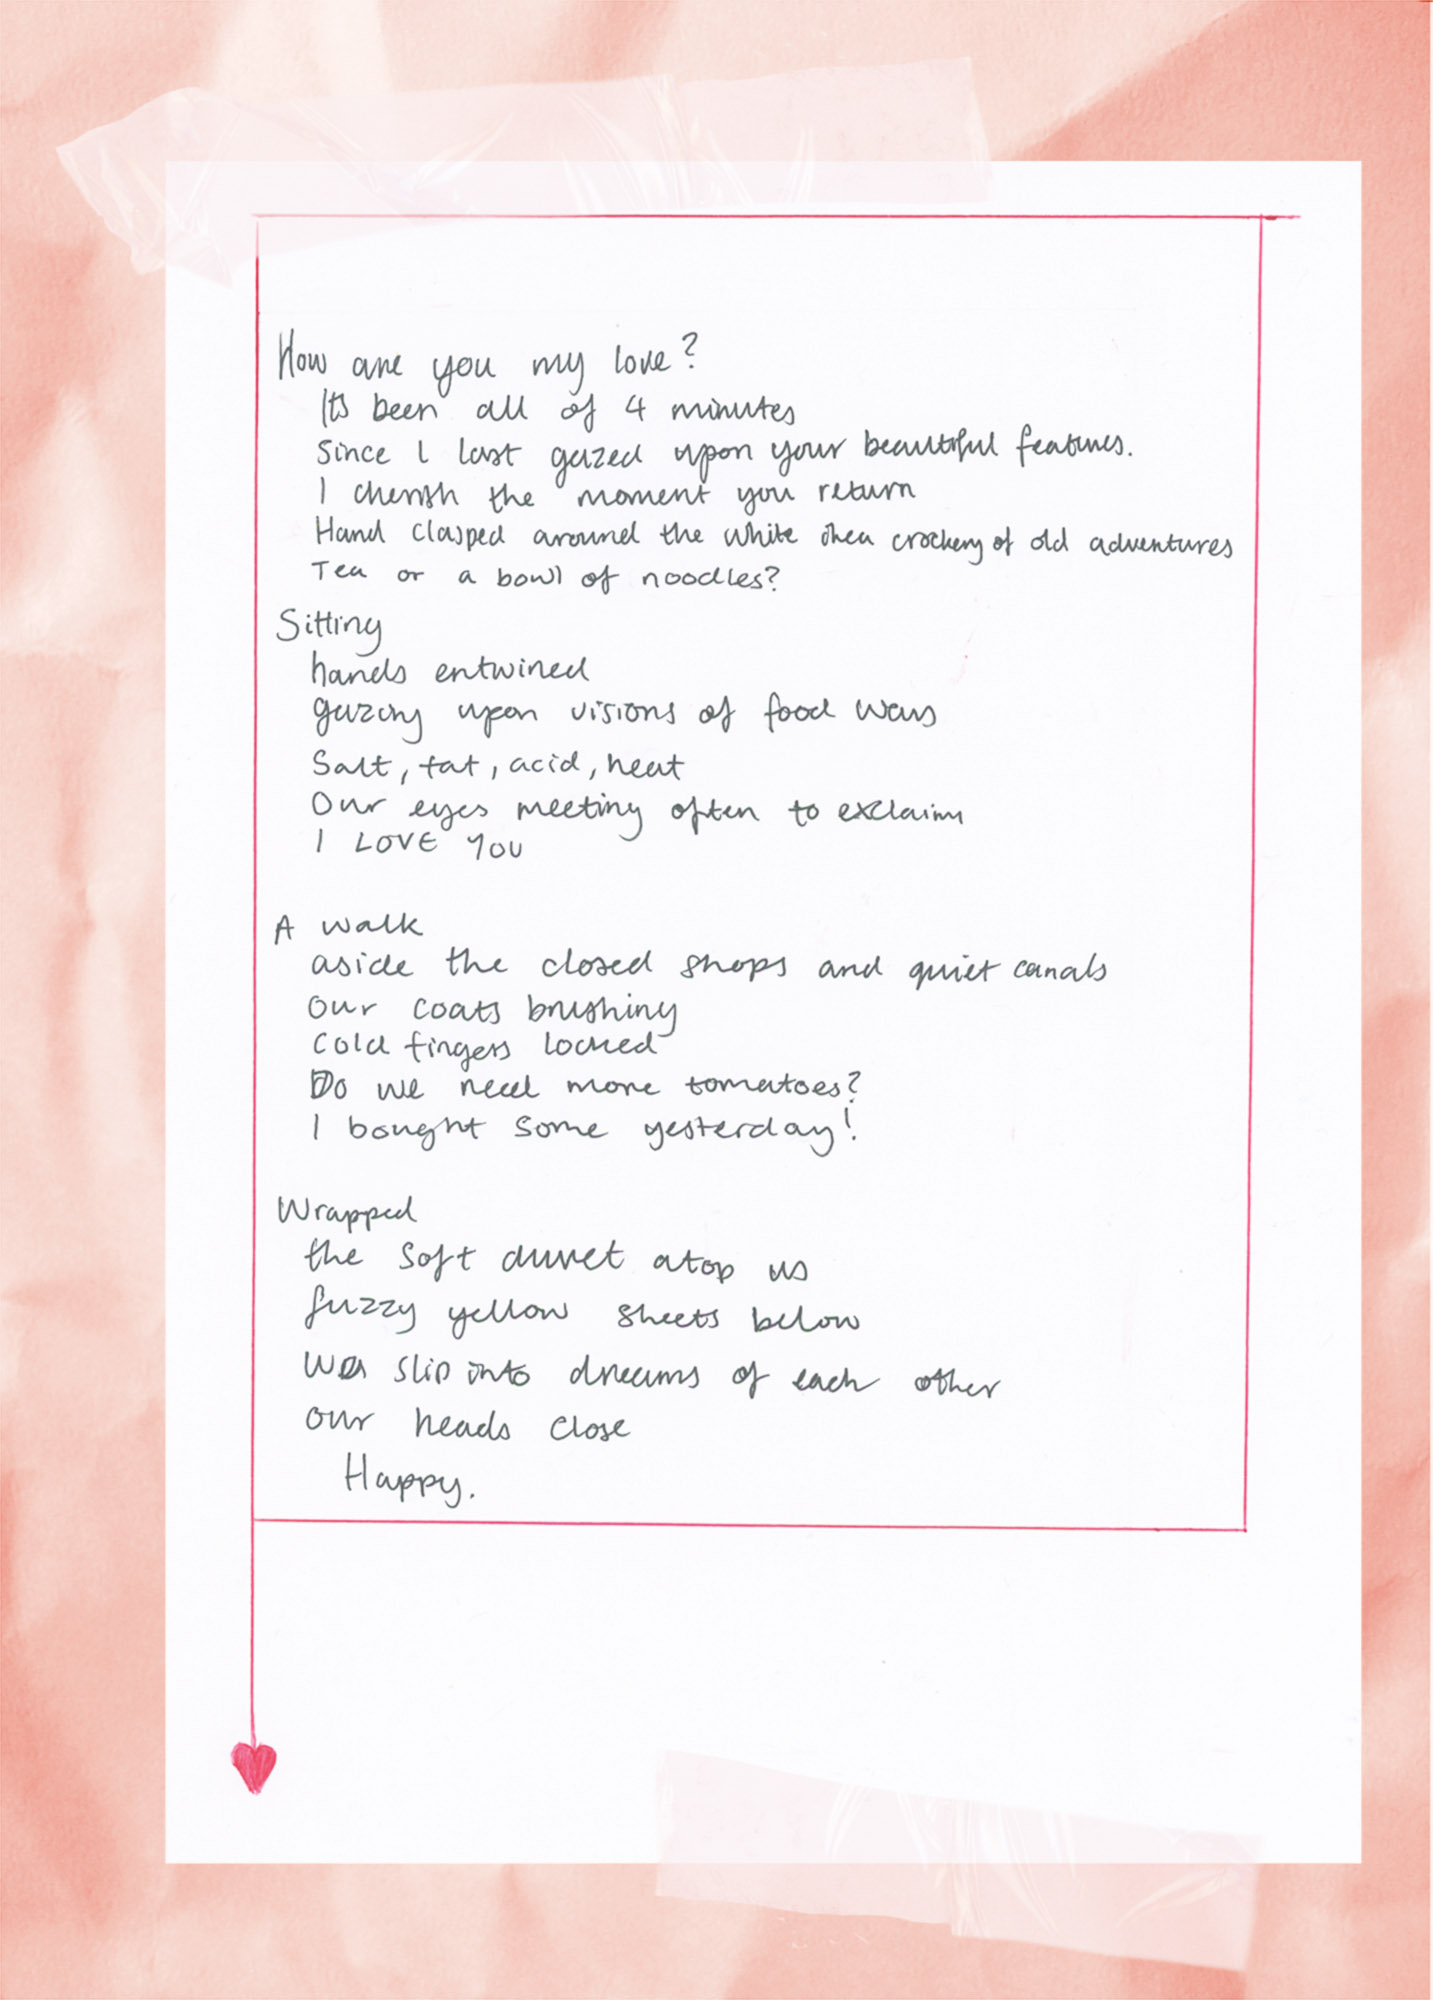 How are you my love?
Its been all of 4 minutes
Since I last gazed upon your beautiful features.
I cherish the moment you return
Hand clasped around the white crockery of old adventures
Tea or a bowl of noodles?
Sitting
hands entwined
gazing upon visions of food wars
Salt, fat, acid, heat
Our eyes meeting often to exclaim
I LOVE YOU
A walk
aside the closed shops and quiet canals
our coats brushing
cold fingers locked
Do we need more tomatoes?
I bought some yesterday!
Wrapped
the soft duvet atop us
fuzzy yellow sheets below
We slip into dreams of each other
our heads close
Happy.